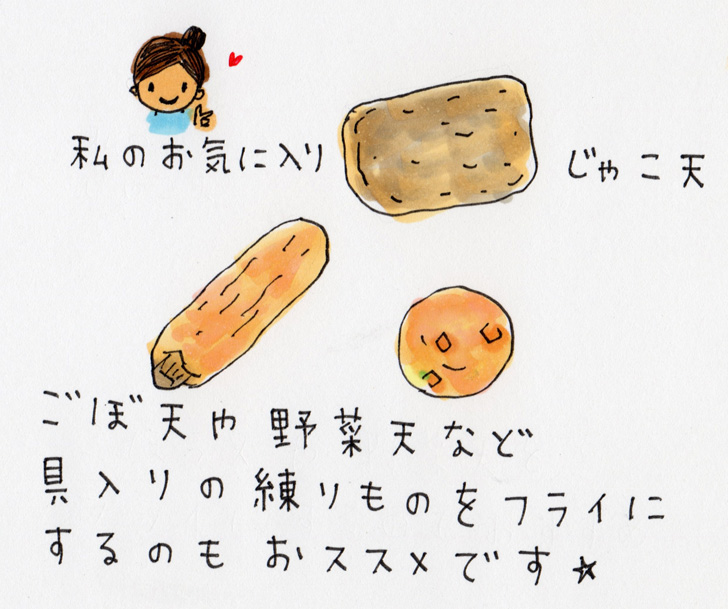 私のお気に入り
じゃこ天
ごぼ天や野菜天など
具入りの練りものをフライに
するのもおススメです☆